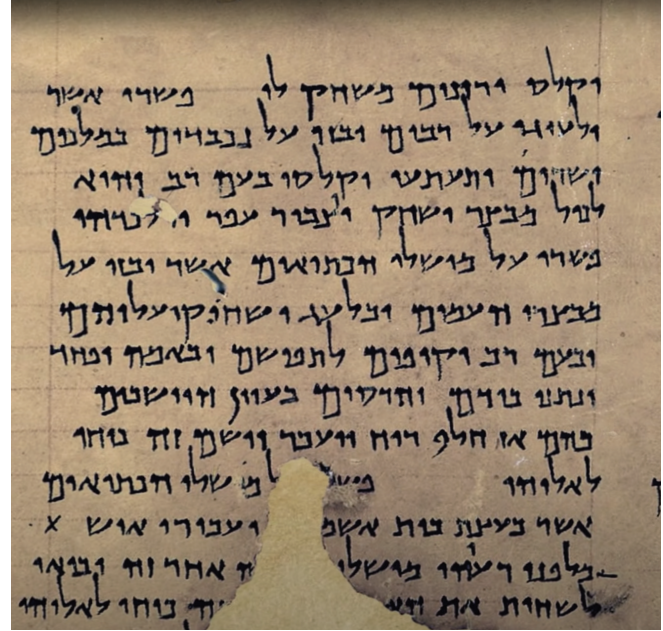 יקלס ורזנים משחק לו פשרו אשר
ילעיגו על רבים ובזו על נכבדים במלכים
ושרים יתעתעו וקלסו בעם רב והוא
לכול מבצר ישחק ויצבור עפר וילכדהו
פשרו על מושלי הכתיאים אשר יבזו על
מבצרי העמים ובלעג ישחוקו עליהם
ובעם רב יקיפום לתפושם ובאמה ופחד
ינתנו בידם והרסום בעוון היושבים
בהם אז חלף רוח ויעבר וישם זה כוחו
לאלוהו פש ל מושלי הכתיאים
אשר בעצת בית אשמ יעבורו איש
מלפני רעיהו מושלי ה אחר זה יבואו
לשחית את הא זה כוחו לאלוהו